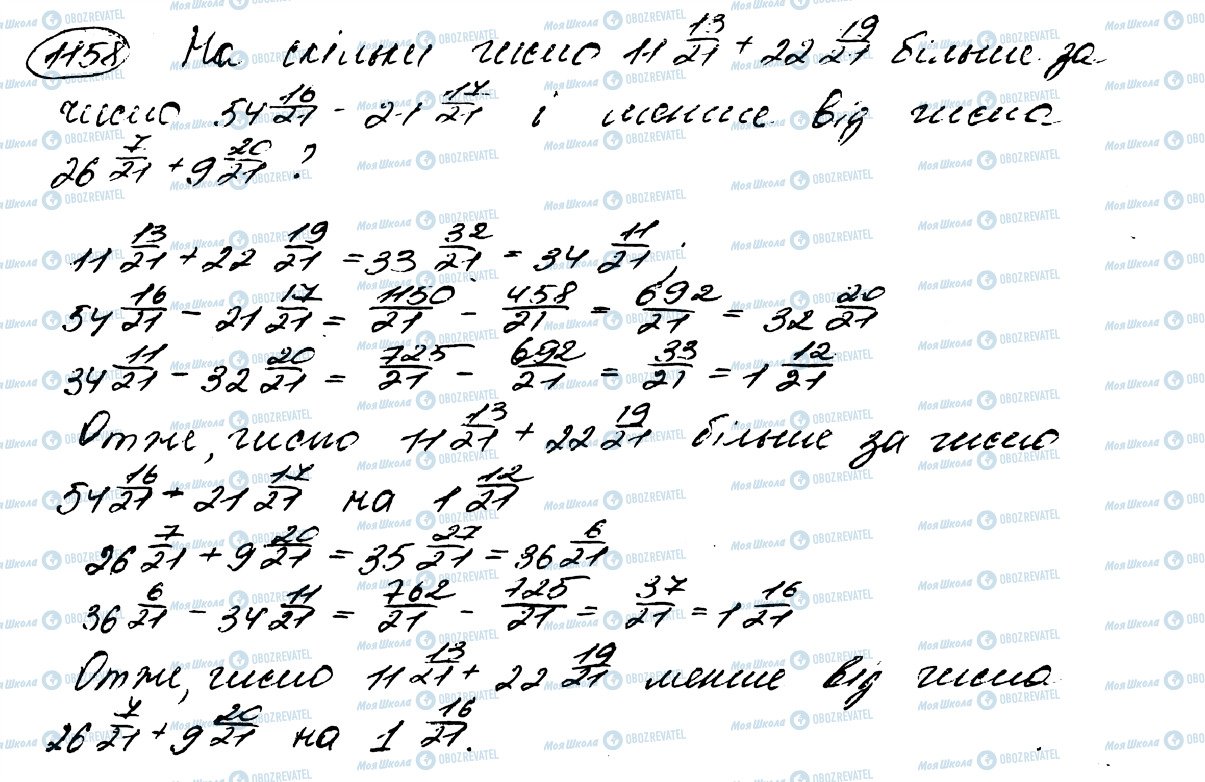 1158 На скільки число 11 13/21 + 22 19/21 більше за
число 54 16/21 - 21 17/21 і менше від числа
26 7/21 + 9 20/21 ?
11 13/21 + 22 19/21 = 33 32/21 = 34 11/21 ;
54 16/21 - 21 17/21 = 1150/21 - 458/21 = 692/21 = 32 20/21
34 11/21 - 32 20/21 = 725/21 - 692/21 = 33/21 = 1 12/21
Отже, число 11 13/21 + 22 19/21 більше за число
54 16/21 - 21 17/21 на 1 12/21
26 7/21 + 9 20/21 = 35 27/21 = 36 6/21
36 6/21 - 34 11/21 = 762/21 - 725/21 = 37/21 = 1 16/21
Отже, число 11 13/21 + 22 19/21 менше від числа
26 7/21 + 9 20/21 на 1 16/21.
Моя Школа OBOZREVATEL